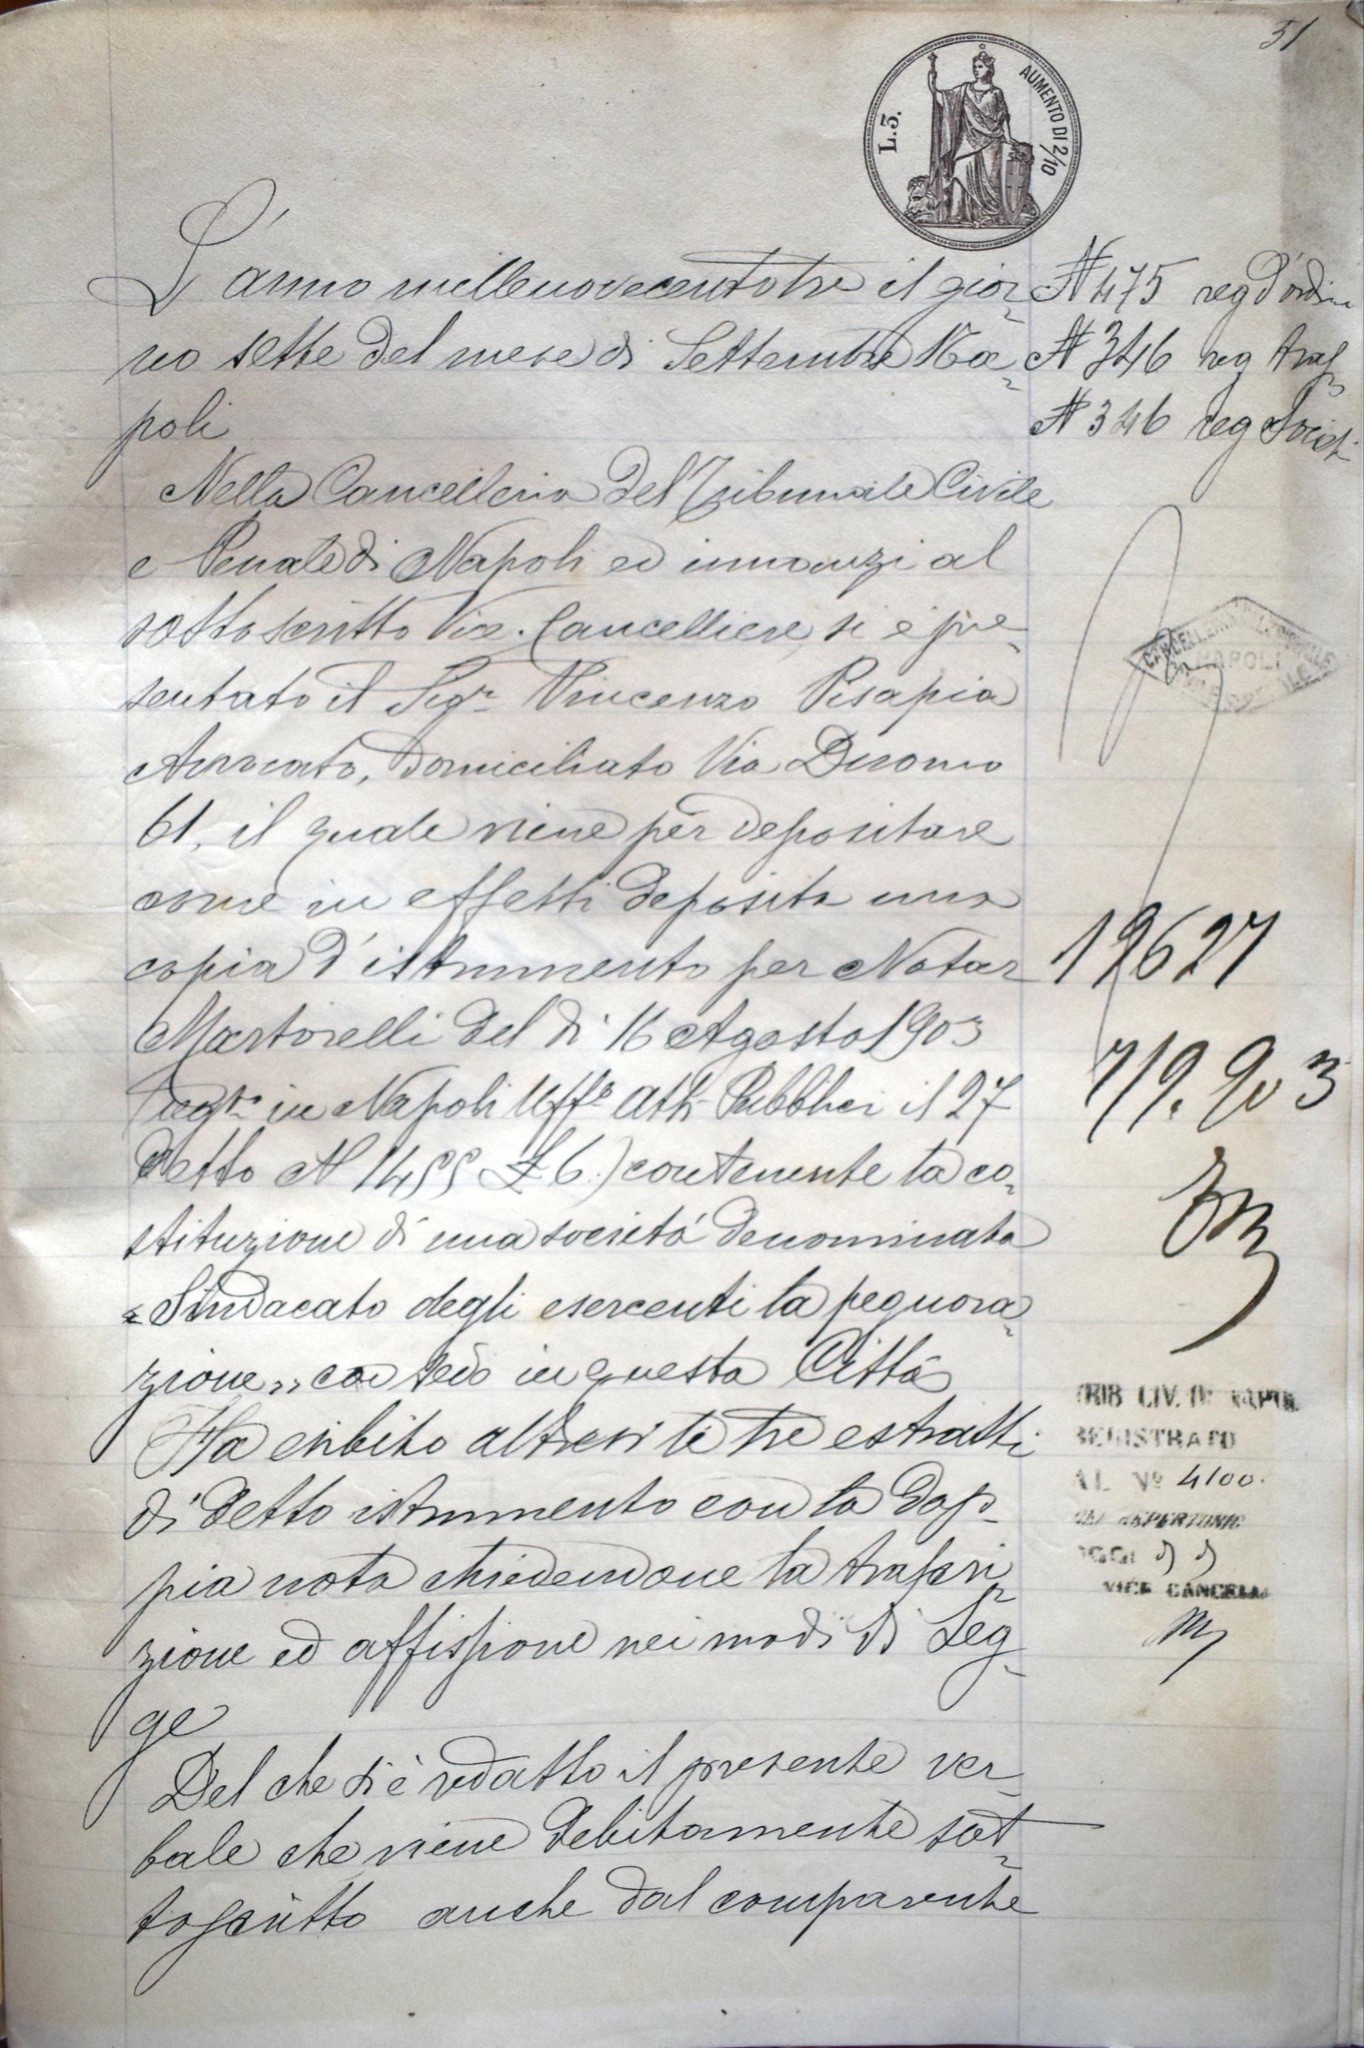 31
L. 3.
AUMENTO DI 2/10
L'anno millenovecentotre il gior=
no sette del mese di Settembre Na=
poli
N 475 reg d'ordine
N 346 reg trasf
N 346 reg Societ
Nella Cancelleria del Tribunale Civile
e Penale di Napoli ed innanzi al
sottoscritto Vice. Cancelliere, si è pre=
sentato il Sigr Vincenzo Pisapia
Avvocato, domiciliato Via Duomo
61, il quale viene per depositare
come in effetti deposita una
copia d'istrumento per Notar
Martorelli del dì 16 Agosto 1903
(regto in Napoli Uffo Atti Pubblici il 27
detto N 1455 £ 6.) contenente la co=
stituzione di una società denominata
"Sindacato degli esercenti la pegnora=
zione" con sede in questa Città
Ha esibito altresì le tre estratti
di detto istrumento con la dop=
pia nota chiedendone la trascri=
zione ed affissione nei modi di Leg=
ge
Del che si è redatto il presente ver=
bale che viene debitamente sot=
toscritto anche dal comparente
CANCELLERIA
NAPOLI
12627
7/9. 903
TRIB CIV. DI NAPOLI
REGISTRATO
AL Nº 4100.
DEL REPERTORIO
OGGI
VICE CANCELL